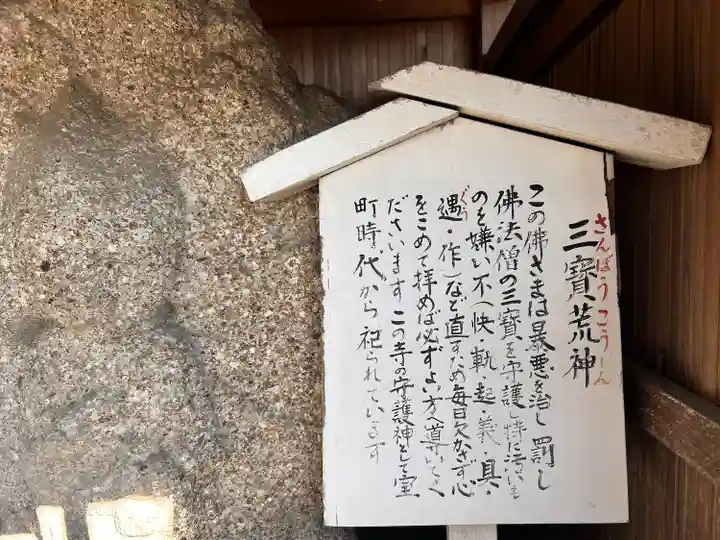 さんぼうこうじん
三寳荒神
この佛さまは暴悪を治し罰し
佛法僧の三寳を守護し特に汚いも
のを嫌い不(快・軌・起・義・具・
ぐう
遇・作)など直すため毎日欠かさず心
をこめて拝めば必ずよい方へ導いてく
ださいます この寺の守護神として室
町時代から祀られています